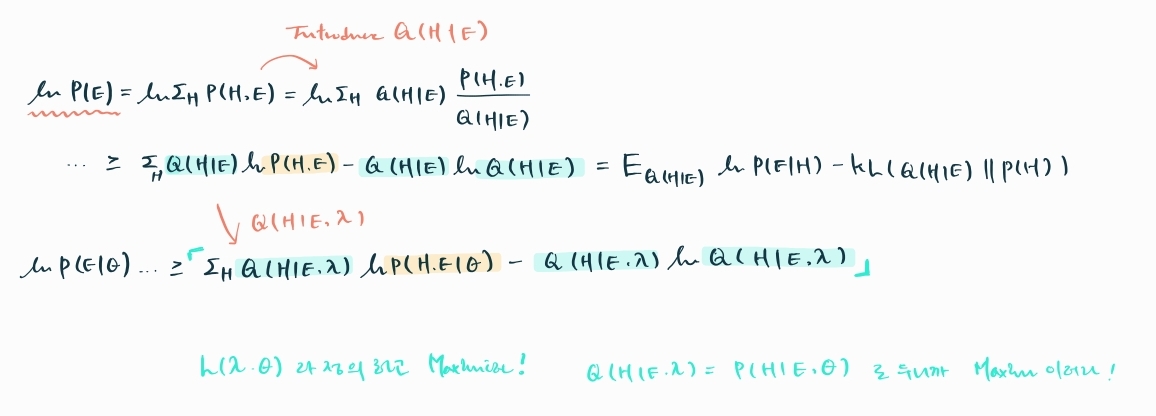 Introduce Q(H|E)
ln P(E) = ln Σ_H P(H,E) = ln Σ_H Q(H|E) P(H,E) / Q(H|E)
... ≥ Σ_H Q(H|E) ln P(H,E) - Q(H|E) ln Q(H|E) = E_Q(H|E) ln P(E|H) - KL(Q(H|E) || P(H))
Q(H|E,λ)
ln P(E|θ) ... ≥ 「Σ_H Q(H|E,λ) ln P(H,E|θ) - Q(H|E,λ) ln Q(H|E,λ)」
L(λ,θ) 라 정의 하고 Maximize! Q(H|E,λ) = P(H|E,θ) 로 두니까 이더라!